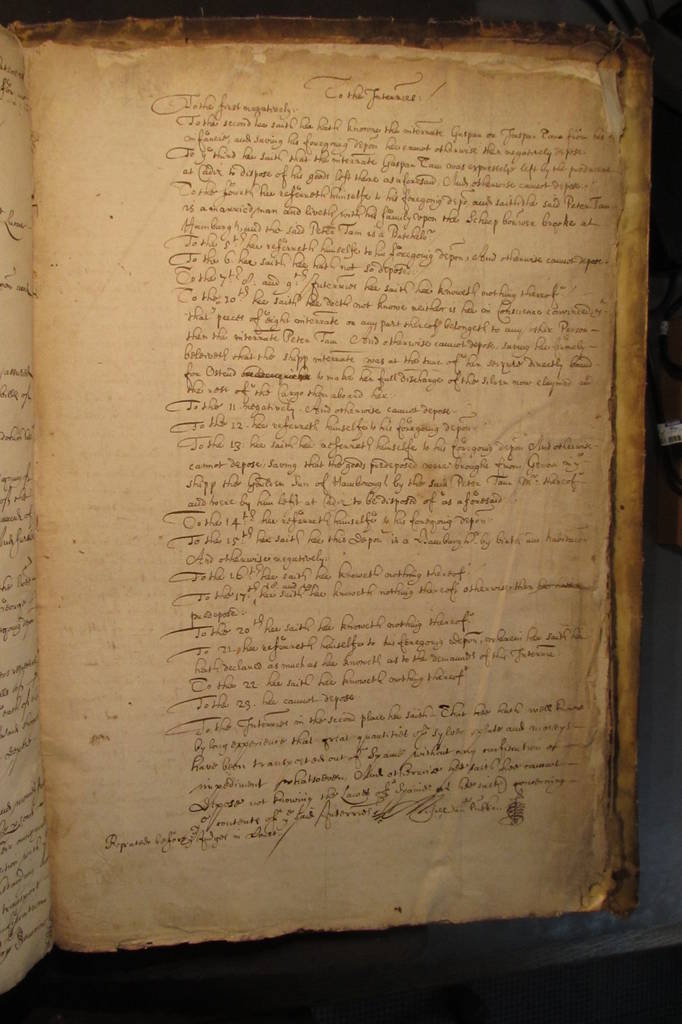 To the Interries:
To the first negatively:
To the second hee saith hee hath knowne the interrate Gaspar or Jasper Tam from his
infancie, and saving his foregoing depon hee cannot otherwise then negatively depose.
To ye third hee saith that the interrate Gaspar Tam was expressely left by the producent
at Cadiz to dispose of his goods left there as aforesaid. And otherwise cannot depose.
To the fourth hee referreth himselfe to his foregoing depon and saith the said Peter Tam
is a married man and liveth with his family upon the Scheep bowwer brooke at
Hamburgh, and the said Peter Tam is a Batchelor
To the 5th hee referreth himselfe to his foregoing depon, And otherwise cannot depose.
To the 6. hee saith hee hath not so deposed.
To the 7th 8. and 9th Interries hee saith hee knoweth nothing thereof
To the 10th hee saith hee doth not knowe neither is hee in Conscience convinced, yt
that peeces of eight interrate or any part thereof belongeth to any other Person
then the interrate Peter Tam And otherwise cannot depose, saving hee firmely
beleiveth that the shipp interrate was at the time of her seizure directly bound
for Ostend to make her full discharge of the silver now claymed and
the rest of the Cargo then aboard her.
To the 11. negatively. And otherwise cannot depose.
To the 12. hee referreth himselfe to his foregoing depon
To the 13. hee saith hee referreth himselfe to his foregoing depon And otherwise
cannot depose, saving that the goods predeposed were brought from Genoa in ye
shipp the Goulden Sun of Hamborough by the said Peter Tam Mr. thereof
and were by him left at Cadiz to be disposed of as aforesaid
To the 14th hee referreth himselfe to his foregoing depon
To the 15th hee saith hee this depont is a Hamburgher by birth and habitacon
And otherwise negatively.
To the 16th hee saith hee knoweth nothing thereof
To the 17th 18. and 19. hee saith hee knoweth nothing thereof, otherwise then
predeposed.
To the 20th hee saith hee knoweth nothing thereof
To 21. hee referreth himselfe to his foregoing depon, wherein hee saith hee
hath declared as much as hee knoweth as to the demands of this Interrie
To the 22. hee saith hee knoweth nothing thereof
To the 23. hee cannot depose
To the Interries in the second place hee saith That hee hath well knowne
by long experience that great quantities of sylver plate and moneys
have been transported out of Spaine without any confiscation or
impediment whatsoever, And otherwise hee saith hee cannot
depose not knowing the Lawes of Spaine (as hee saith) concerning
ye contents of ye said Interries
Repeated before ye Judges in Court